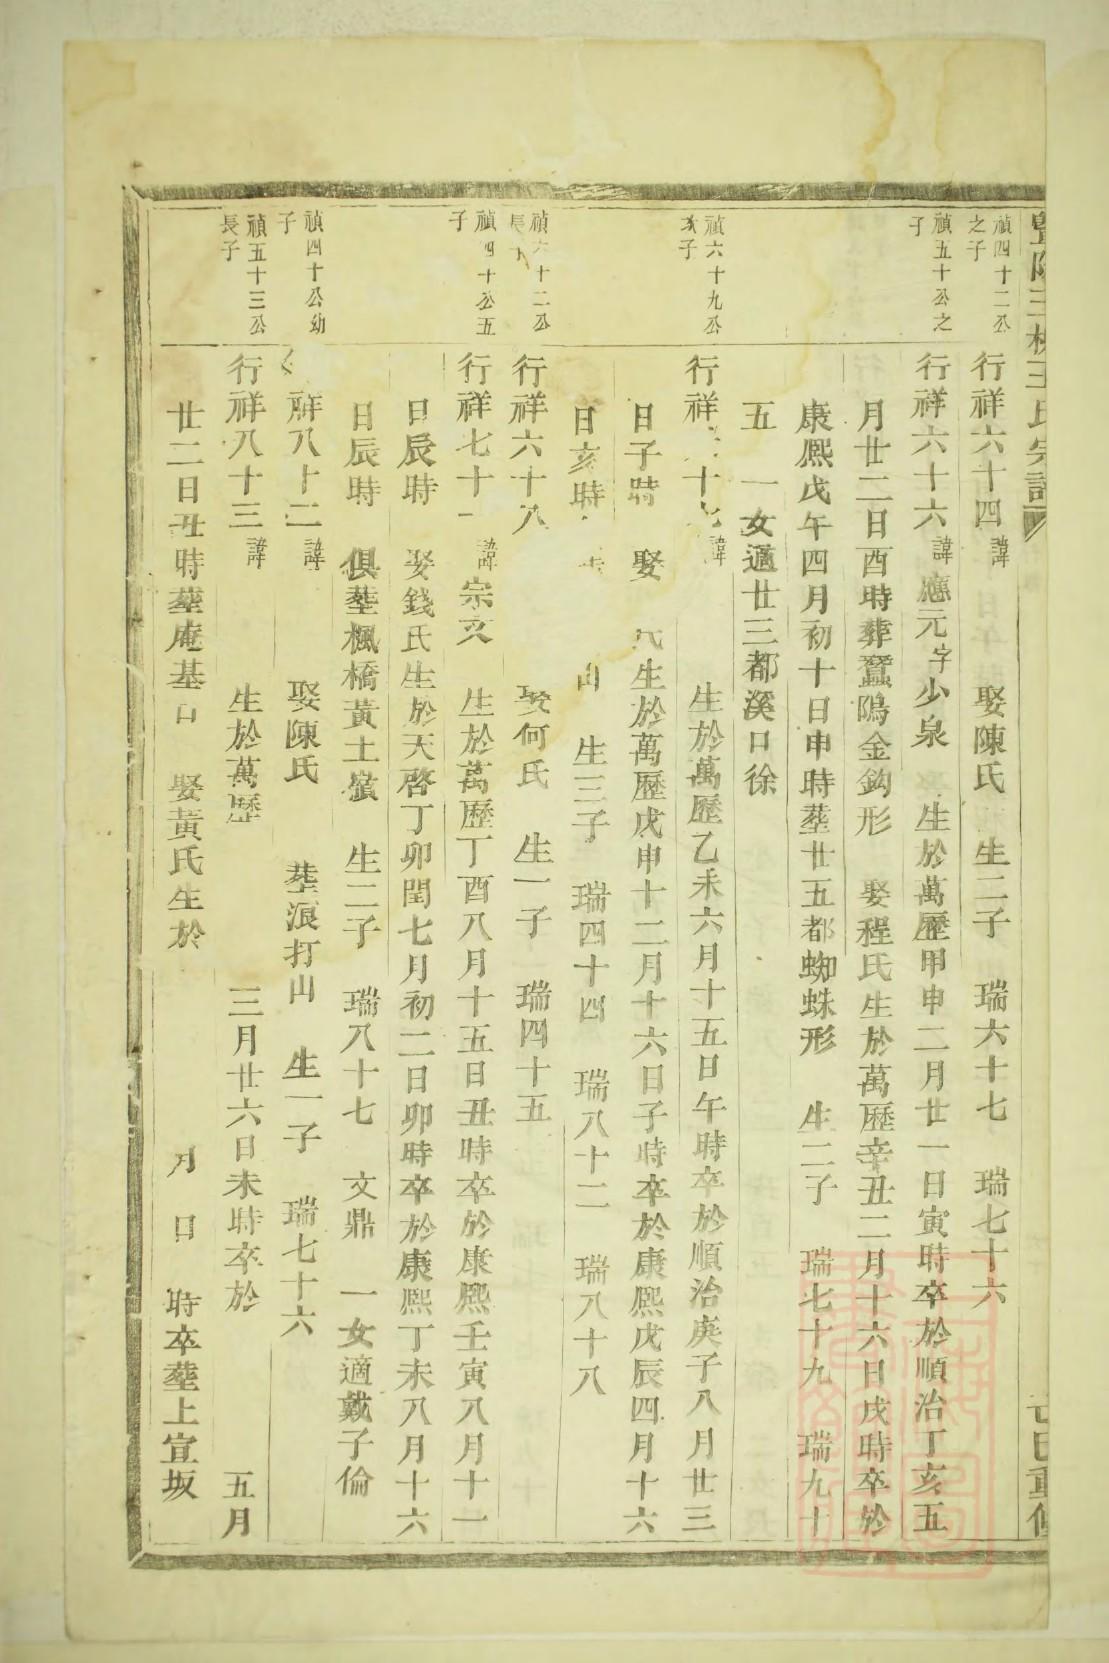 暨陽三橋王氏宗譜
禎四十二公之子
行祥六十四 諱 娶陳氏 生二子 瑞六十七 瑞七十六
禎五十公之子
行祥六十六 諱應元字少泉 生於萬歷甲申二月廿一日寅時卒於順治丁亥五
月廿二日酉時葬蠶鳴金鈎形 娶程氏生於萬歷辛丑二月十六日戌時卒於
康熙戊午四月初十日申時塟廿五都蜘蛛形 生二子 瑞七十九 瑞九十
五 一女適廿三都溪口徐
禎六十九公次子
行祥 十 諱 生於萬歷乙未六月十五日午時卒於順治庚子八月廿三
日子時 娶 氏生於萬歷戊申十二月十六日子時卒於康熙戊辰四月十六
日亥時 山 生三子 瑞四十四 瑞八十二 瑞八十八
禎六十二公長子
行祥六十八 娶何氏 生一子 瑞四十五
禎四十公五子
行祥七十 諱宗文 生於萬歷丁酉八月十五日丑時卒於康熙壬寅八月十一
日辰時 娶錢氏生於天啓丁卯閏七月初二日卯時卒於康熙丁未八月十六
日辰時 俱塟楓橋黃土嶺 生二子 瑞八十七 文鼎 一女適戴子倫
禎四十公幼子
祥八十二 諱 娶陳氏 塟浪打山 生一子 瑞七十六
禎五十三公長子
行祥八十三 諱 生於萬歷 三月廿六日未時卒於 五月
廿二日丑時塟庵基 娶黃氏生於 月 日 時卒塟上宣坂